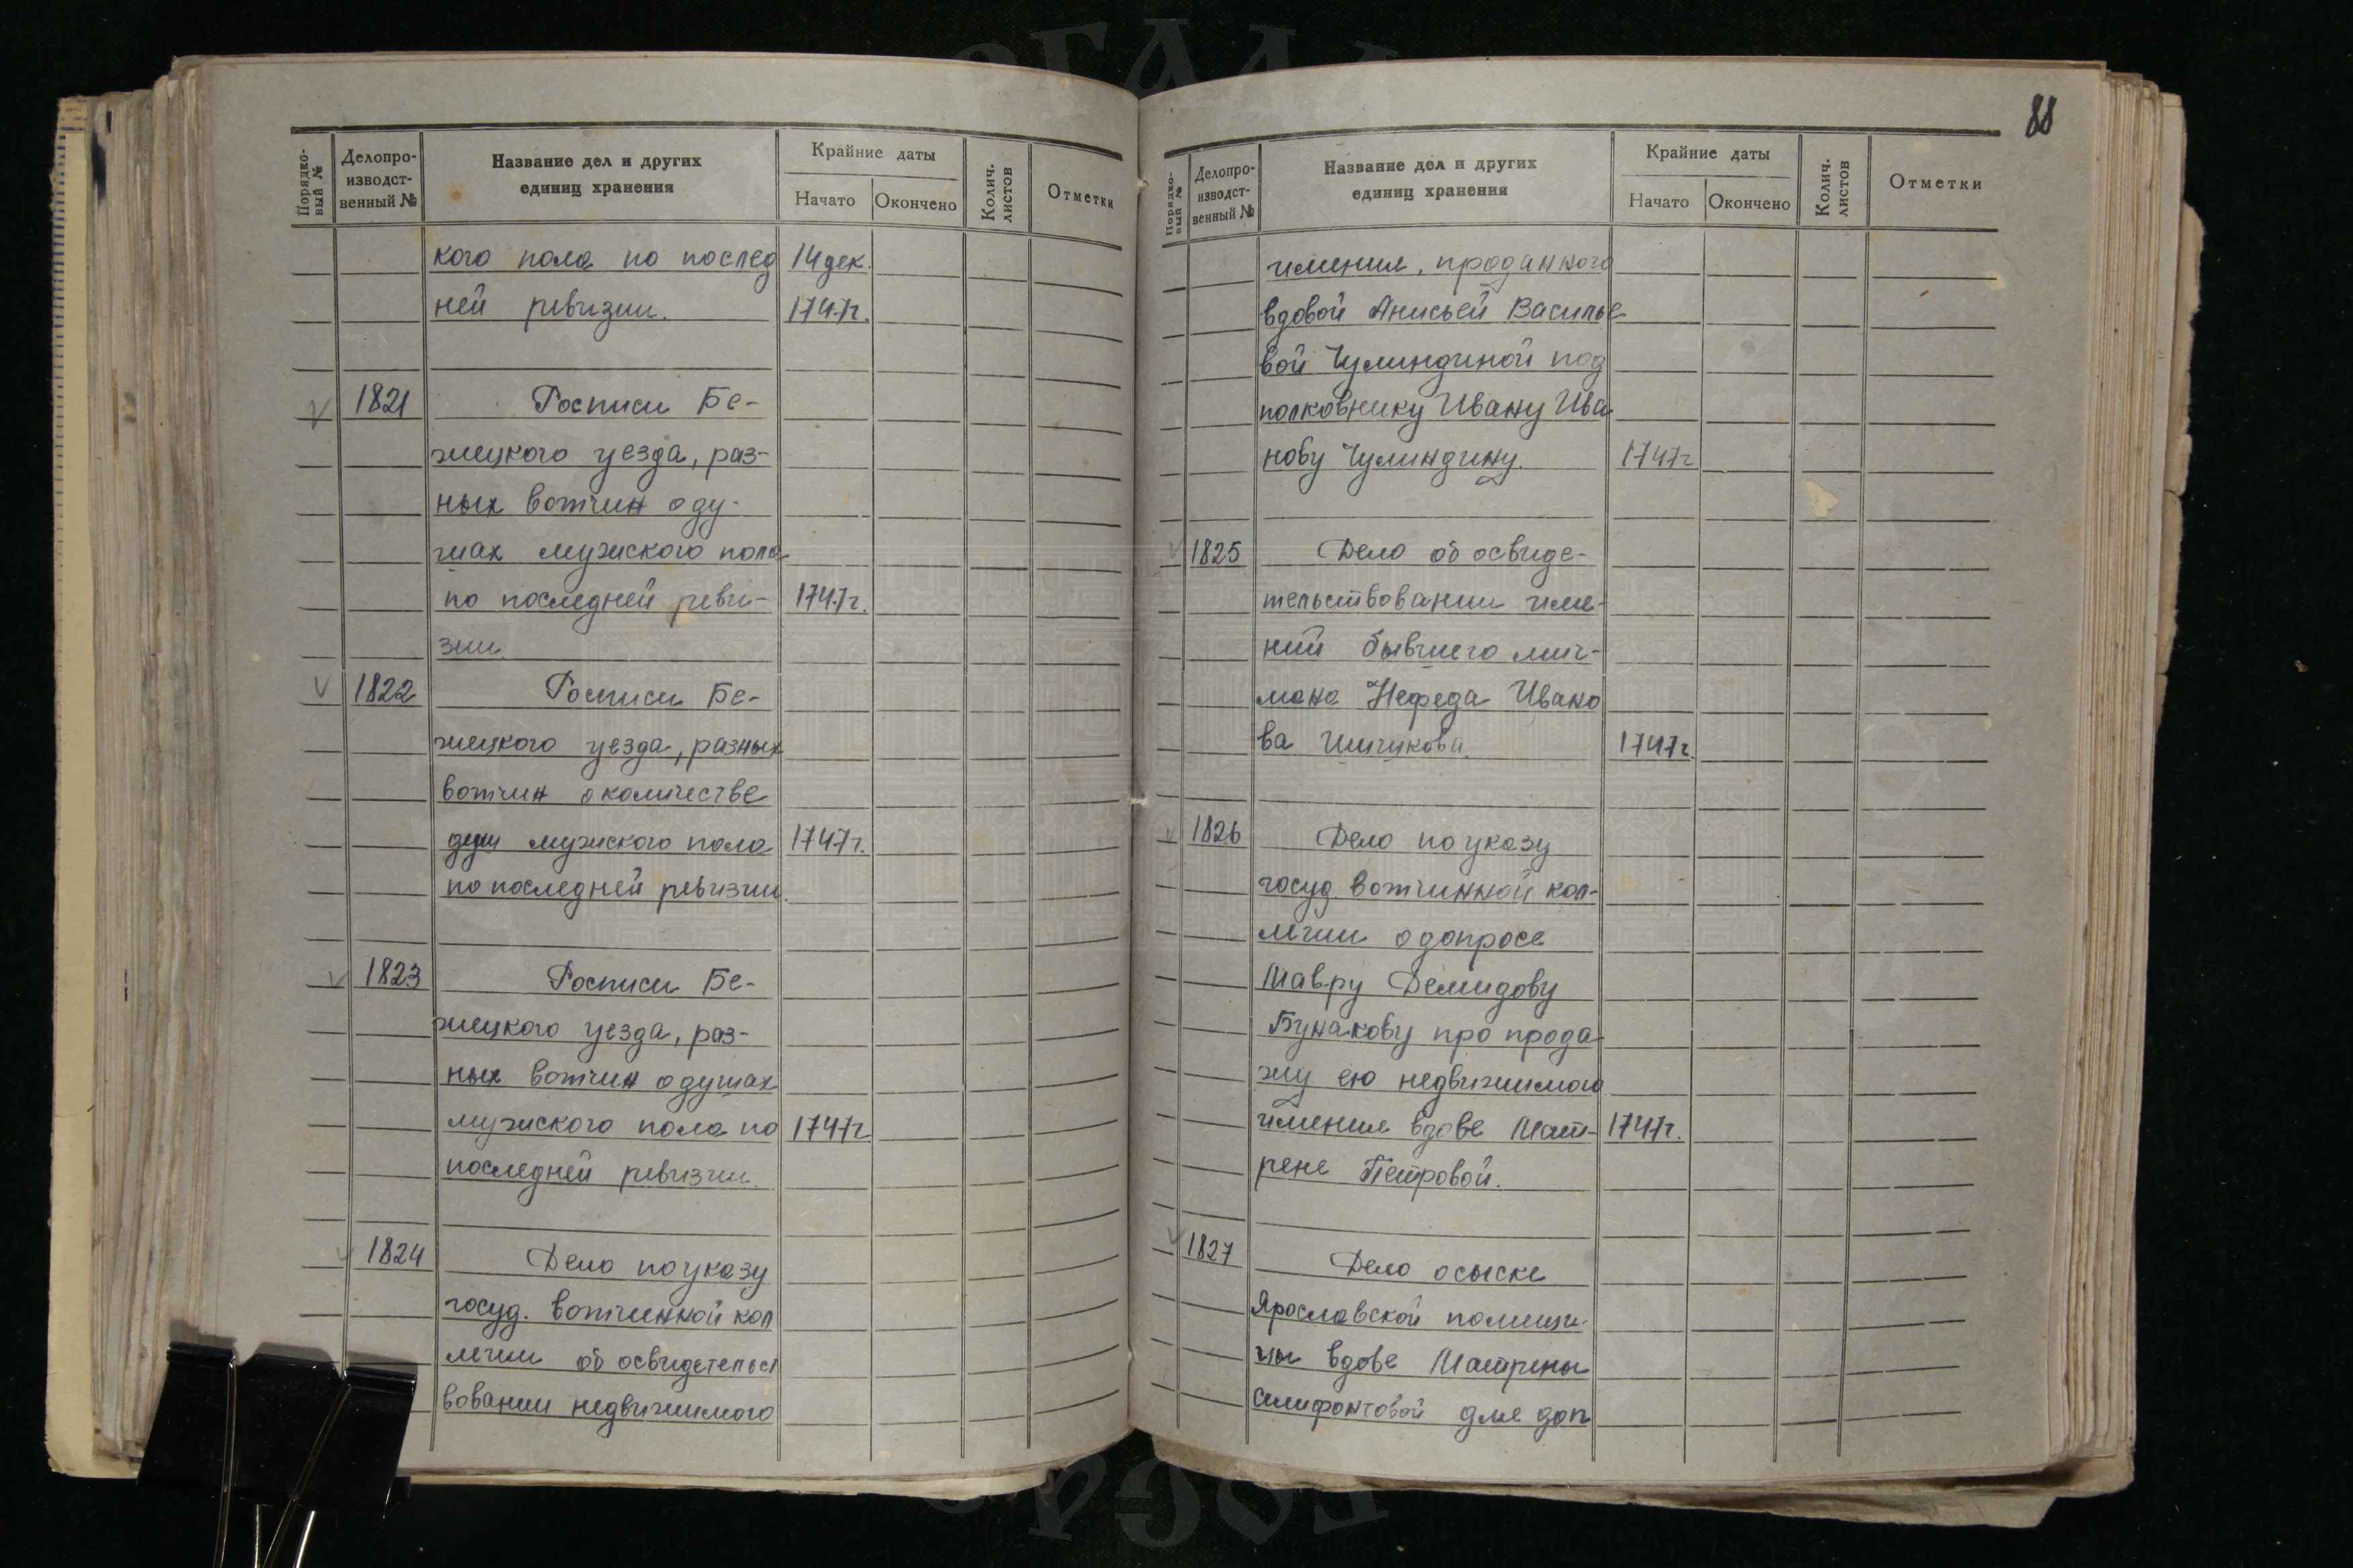 Порядко-
вый №
Делопро-
изводст-
венный №
Название дел и других
единиц хранения
Крайние даты
Начато
Окончено
Колич.
листов
Отметки
кого пола по послед 14 дек.
ней ревизии. 1747г.
1821 Росписи Бе-
жецкого уезда, раз-
ных вотчин о ду-
шах мужского пола
по последней реви- 1747г.
зии.
1822 Росписи Бе-
жецкого уезда, разных
вотчин о количестве
душ мужского пола 1747г.
по последней ревизии.
1823 Росписи Бе-
жецкого уезда, раз-
ных вотчин о душах
мужского пола по 1747г
последней ревизии.
1824 Дело по указу
госуд. вотчинной кол
легии об освидетельст
вовании недвижимого
88
Порядко-
вый №
Делопро-
изводст-
венный №
Название дел и других
единиц хранения
Крайние даты
Начато
Окончено
Колич.
листов
Отметки
имения, проданного
вдовой Анисьей Василье
вой Чулиндиной под
полковнику Ивану Ива
нову Чулиндину. 1747г
1825 Дело об освиде-
тельствовании име-
ний бывшего мич-
мана Нефеда Ивано
ва Шишкова. 1747г.
1826 Дело по указу
госуд. вотчинной кол-
легии о допросе
Мавру Демидову
Бунакову про прода
жу ею недвижимого
имения вдове Мат- 1747г.
рене Петровой.
1827 Дело о сыске
Ярославской помещи-
цы вдове Матрены
Селифонтовой для доп